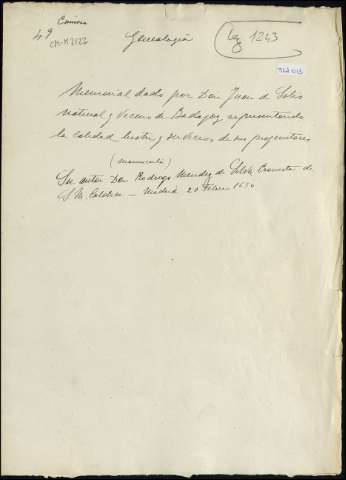 Camisa
49
CM-M 2122
Genealogía
Leg 1243
Memorial dado por Don Juan de Solis
natural y vecino de Badajoz representando
la calidad lustre y servicios de sus progenitores
(manuscrito)
Su autor Don Rodrigo Mendez de Silva Cronista de
S. M. Catolica — Madrid 20 Febrero 1650